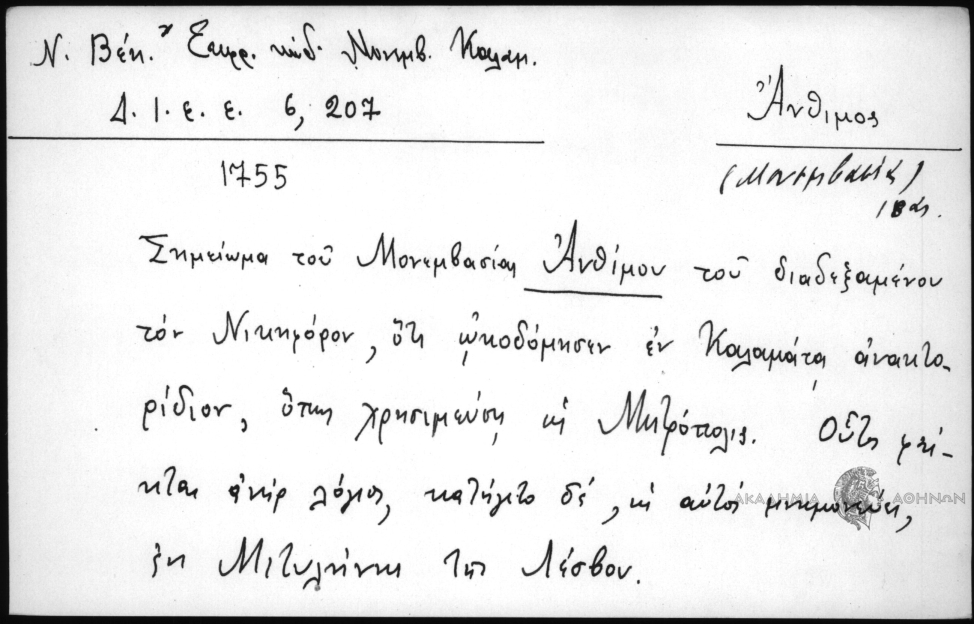 Ν. Βέη. Σπαρ. κώδ. Μονεμβ. Καλαμ.
Δ. Ι. Ε. Ε. 6, 207
Ἄνθιμος
1755
(Μονεμβασίας)
Σημείωμα τοῦ Μονεμβασίας Ἀνθίμου τοῦ διαδεξαμένου
τόν Νικηφόρον, ὅτι ᾠκοδόμησεν ἐν Καλαμάτᾳ ἀνακτο-
ρίδιον, ὅπως χρησιμεύσῃ ὡς Μητρόπολις. Οὗτος φαί-
νεται ἀνήρ λόγιος, κατήγετο δέ, ὡς αὐτός μνημονεύει,
ἐκ Μιτυλήνης τῆς Λέσβου.
ΑΚΑΔΗΜΙΑ ΑΘΗΝΩΝ